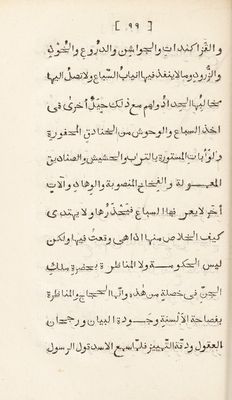 [ ٩٩ ]
والقزاكندات والجواشن والدروع والخوذ
والزرود ومالا ينفذ فيها انياب السباع ولا تصل اليها
مخاليبها الحداد ولهم مع ذلك حيل أخرى فى
اخذ السباع والوحوش من الخنادق المحفورة
والوأبات المستورة بالتراب والحشيش والصناديق
المعمولة والفخاخ المنصوبة والوهاد وآلات
أخر لا يعرفها السباع فتحذرها ولا يهتدى
كيف الخلاص منها اذا هى وقعت فيها ولكن
ليس الحكومة ولا المناظرة بحضرة ملك
الجن فى خصلة من هذه وانما الحجاج والمناظرة
بفصاحة الألسنة وجودة البيان ورجحان
العقول ودقة التمييز فلما سمع الاسد قول الرسول